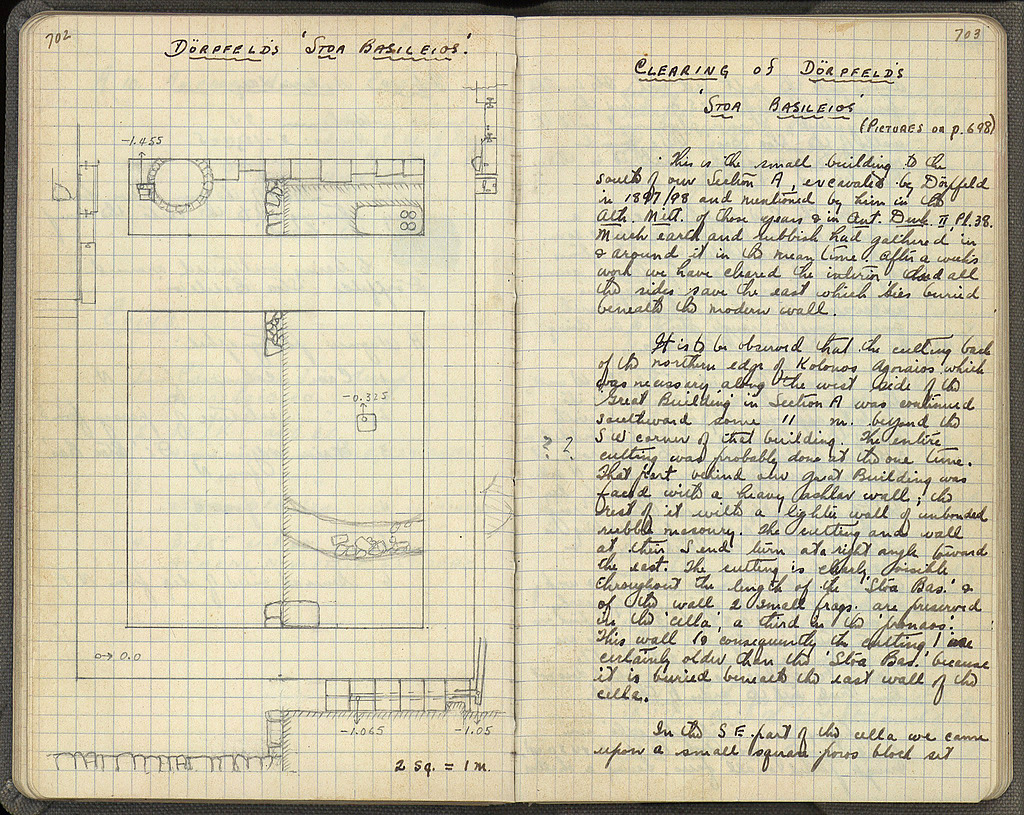 702
DÖRPFELD'S 'STOA BASILEIOS'.
-1.455
-0.325
0.0
-1.065
-1.05
2 sq. = 1 m.
703
CLEARING of DÖRPFELD'S
'STOA BASILEIOS'
(PICTURES on p. 698)
This is the small building to the
south of our Section A, excavated by Dörpfeld
in 1897/98 and mentioned by him in the
Ath. Mitt. of those years & in Ant. Denk. II Pl. 38.
Much earth and rubbish had gathered in
& around it in the mean time. After a week's
work we have cleared the interior and all
the sides save the east which lies buried
beneath the modern wall.
It is to be observed that the cutting back
of the northern edge of Kolonos Agoraios which
was necessary along the west side of the
Great Building in Section A was continued
southward some 11 m. beyond the
? ? SW corner of that building. The entire
cutting was probably done at the one time.
That part behind our Great Building was
faced with a heavy ashlar wall; the
rest of it with a lighter wall of unbonded
rubble masonry. The cutting and wall
at their S end turn at a right angle toward
the east. The cutting is clearly visible
throughout the length of the 'Stoa Bas.' &
of the wall 2 small frags. are preserved
in the 'cella', a third in the 'pronaos'.
This wall (& consequently the cutting) are
certainly older than the 'Stoa Bas.' because
it is buried beneath the east wall of the
cella.
In the S E. part of the cella we came
upon a small square poros block set